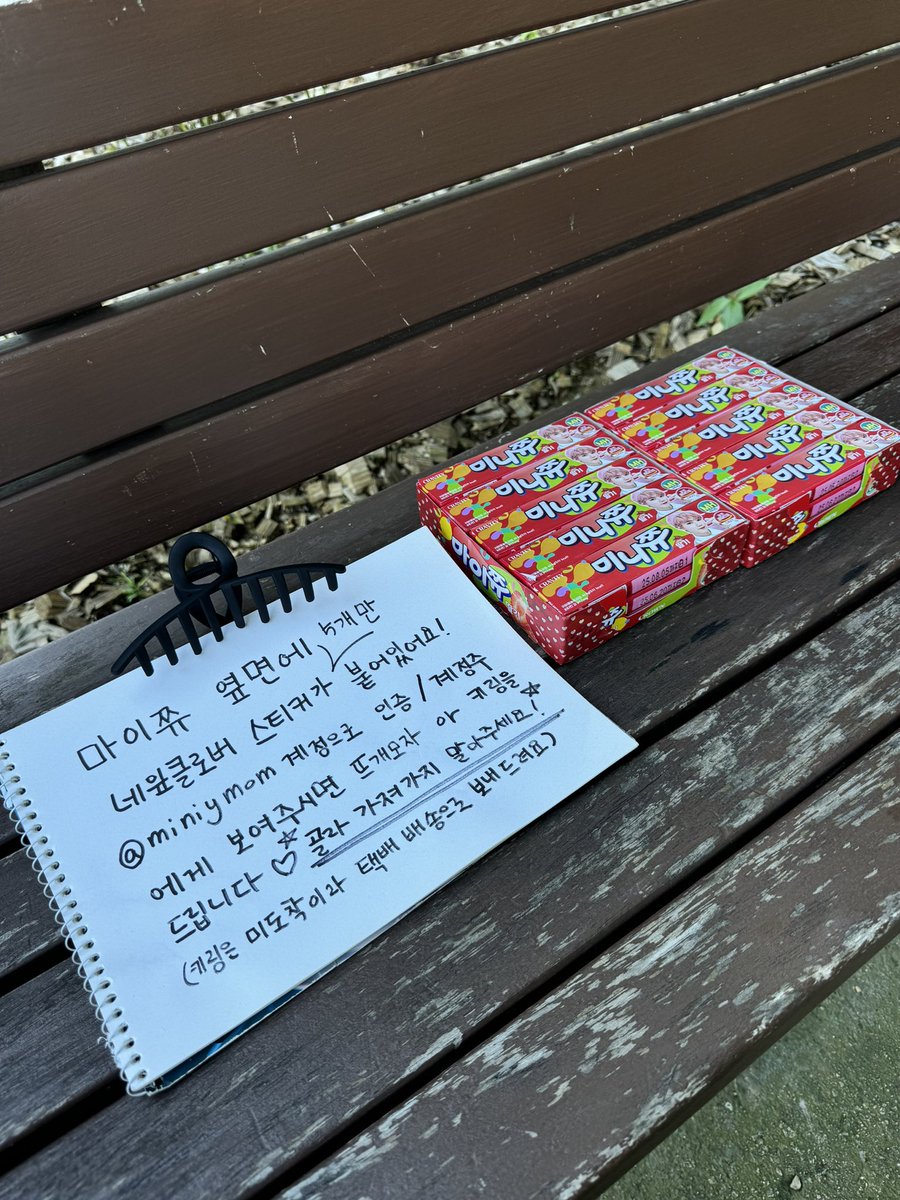 마이쮸 옆면에 5개만
네잎클로버 스티커가 붙어있어요!
@miniymom 계정으로 인증/계정주
에게 보여주시면 뜨개모자 아 키링을
드립니다 ♡ ☆골라 가져가지 말아주세요!☆
(키링은 미도착이라 택배 배송으로 보내드려요)
미니쮸
미니쮸
미니쮸
미니쮸
미니쮸
미니쮸
미니쮸
미니쮸
미니쮸
미니쮸
마이쮸